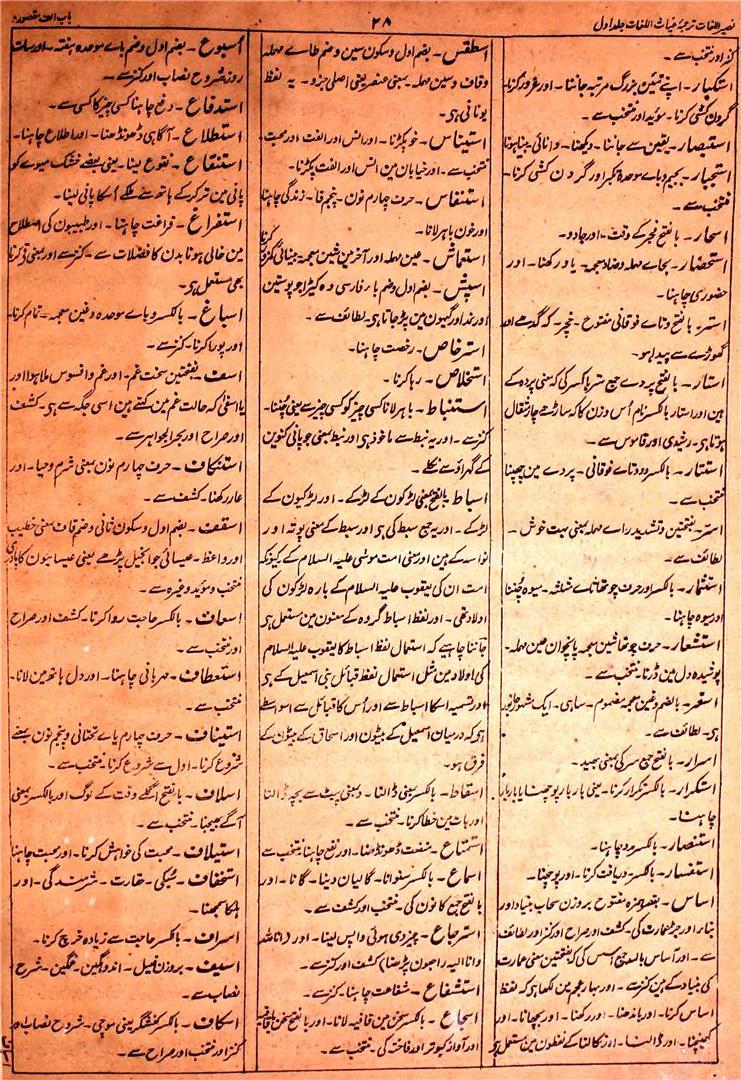 نصیر اللغات ترجمۂ غیاث اللغات جلد اول
۲۸
باب الف مقصورہ
کنز اور منتخب سے۔
استکبار۔ اپنے تئین بزرگ مرتبہ جاننا۔ اور غرور کرنا۔
گردن کشی کرنا۔ مؤید اور منتخب سے۔
استبصار۔ یقین سے جاننا۔ دیکھنا۔ دانائی بینا ہونا
استجبار۔ بجیم و باے موحدہ تکبر اور گردن کشی کرنا۔
منتخب سے۔
اسحار۔ بالفتح فجر کے وقت۔ اور جادو۔
استحضار۔ بحاے مہملہ وضاد معجمہ۔ یاد رکھنا۔ اور
حضوری چاہنا۔
استر۔ بالفتح وتاے فوقانی مفتوح۔ خچر۔ کہ گدھے اور
گھوڑے سے پیدا ہو۔
استار۔ بالفتح پردے جمع ستر بالکسر کی کہ بمعنی پردہ کے
ہین اور استار بالکسر نام اُس وزن کا کہ ساڑھے چار مثقال
ہوتا ہی۔ رشیدی اور قاموس سے۔
استتار۔ بالکسر ودتاے فوقانی۔ پردے مین چھپنا
منتخب سے۔
اسر۔ بفتحتین وتشدید راے مہملہ بمعنی بہت خوش۔
لطائف سے۔
استثمار۔ بالکسر اور حرف چوتھا ثاے مثلثہ۔ میوہ چننا
اور میوہ چاہنا۔
استشعار۔ حرف چوتھا شین معجمہ پانچوان عین مہملہ۔
پوشیدہ دل مین ڈرنا۔ منتخب سے۔
اسغر۔ بالضم وغین معجمہ مضموم۔ ساہی۔ ایک مشہور جانور
ہی۔ لطائف سے۔
اسرار۔ بالفتح جمع سر کی بمعنی بھید۔
استکرار۔ بالکسر تکرار کرنا۔ یعنی بار بار پوچھنا یا بار بار
چاہنا۔
استنصار۔ بالکسر مدد چاہنا۔
استفسار۔ بالکسر۔ دریافت کرنا۔ اور پوچھنا۔
اساس۔ بقصر ہمزہ مفتوح بروزن سحاب بنیاد اور
بناء اور جڑ عمارت کی۔ کشف اور صراح اور کنز اور لطائف
سے۔ اور آساس بالمد جمع اسس کی کہ بفتحتین بمعنی عمارت
کی بنیاد کے ہین کنز سے۔ اور بہار عجم مین لکھا ہی کہ لفظ
اساس کرنا۔ اور باندھنا۔ اور رکھنا۔ اور بچھانا۔ اور
کھینچنا۔ اور ڈالنا۔ اور نکالنا کے لفظون مین مستعمل ہی
اسطقس۔ بضم اول وسکون سین وضم طاے مہملہ
وقاف وسین مہملہ۔ بمعنی عنصر یعنی اصلی جزو۔ یہ لفظ
یونانی ہی۔
استیناس۔ خو پکڑنا۔ اور انس اور الفت اور محبت۔
منتخب سے۔ اور خیابان مین انس اور الفت پکڑنا۔
استنفاس۔ حرف چہارم نون۔ پنجم فا۔ زندگی چاہنا
اور خون باہر لانا۔
استعماش۔ عین مہملہ اور آخر مین شین معجمہ۔ بینائی کمزور کرنا
اسپش۔ بضم اول وضم باء فارسی وہ کیڑا جو پوستین
اور نمد اور گیہون مین پڑجاتا ہی۔ لطائف سے۔
استرخاص۔ رخصت چاہنا۔
استخلاص۔ رہا کرنا۔
استنباط۔ باہر لانا کسی چیز کو کسی چیز سے یعنی چننا۔
کنز سے۔ اور یہ نبط سے ماخوذ ہی اور نبط بمعنی جو پانی کنوین
کے گہراؤ سے نکلے۔
اسباط۔ بالفتح بمعنی لڑکون کے لڑکے۔ اور لڑکیون کے
لڑکے۔ اور یہ جمع سبط کی ہی اور سبط کے معنی پوتہ اور
نواسہ کے ہین اور بمعنی امت موسٰی علیہ السلام کے کیونکہ
امت ان کی یعقوب علیہ السلام کے بارہ لڑکون کی
اولاد تھی۔ اور لفظ اسباط گروہ کے معنون مین مستعمل ہی
جاننا چاہیے کہ استعمال لفظ اسباط کا یعقوب علیہ السلام
کی اولاد مین مثل استعمال لفظ قبائل بنی اسمٰعیل کے ہی
اور تسمیہ اسکا اسباط سے اور اُس کا قبائل سے اسواسطے
ہی کہ درمیان اسمٰعیل کے بیٹون اور اسحاق کے بیٹون کے
فرق ہو۔
اسقاط۔ بالکسر بمعنی ڈالنا۔ وبمعنی پیٹ سے بچہ ڈالنا
اور بات مین خطا کرنا۔ منتخب سے۔
استمتاع۔ منفعت ڈھونڈھنا۔ اور نفع چاہنا منتخب سے
اسماع۔ بالکسر سنوانا۔ گالیان دینا۔ گانا۔ اور
بالفتح جمع کانون کی۔ منتخب اور کشف سے۔
استرجاع۔ چیز دی ہوئی واپس لینا۔ اور (انا للہ
وانا الیہ راجعون پڑھنا) کشف اور کنز سے۔
استشفاع۔ شفاعت چاہنا۔ کنز سے۔
اسجاع۔ بالکسر سخن مین قافیہ لانا۔ اور بالفتح سخن باقافیہ
اور آواز کبوتر اور فاختہ کی۔ منتخب سے۔
اسبوع۔ بضم اول وضم باے موحدہ ہفتہ۔ اور سات
روز۔ شروح نصاب اور کنز سے۔
استدفاع۔ دفع چاہنا کسی چیز کا کسی سے۔
استطلاع۔ آگاہی ڈھونڈھنا۔ اور اطلاع چاہنا۔
استنقاع۔ نقوع لینا۔ یعنی بعضے خشک میوے کو
پانی مین تر کرکے ہاتھ سے ملکے اُسکا پانی لینا۔
استفراغ۔ فراغت چاہنا۔ اور طبیبون کی اصطلاح
مین خالی ہونا بدن کا فضلات سے۔ کنز سے اور بمعنی قے کرنا
بھی مستعمل ہی۔
اسباغ۔ بالکسر وباے موحدہ وغین معجمہ۔ تمام کرنا۔
اور پورا کرنا۔ کنز سے۔
اسف۔ بفتحتین سخت غم۔ اور غم وافسوس ملا ہوا اور
یا اسفیٰ کہ حالت غم مین کہتے ہین اسی جگہ سے ہی۔ کشف
اور صراح اور بحر الجواہر سے۔
استنکاف۔ حرف چہارم نون بمعنی شرم وحیا۔ اور
عار رکھنا۔ کشف سے۔
اسقف۔ بضم اول وسکون ثانی وضم قاف بمعنی خطیب
اور واعظ۔ عیسائی جو انجیل پڑھے یعنی عیسائیون کا پادری
منتخب ومؤید وغیرہ سے۔
اسعاف۔ بالکسر حاجت روا کرنا۔ کشف اور صراح
اور منتخب سے۔
استعطاف۔ مہربانی چاہنا۔ اور دل ہاتھ مین لانا۔
منتخب سے۔
استیناف۔ حرف چہارم یاے تحتانی وپنجم نون بمعنے
شروع کرنا۔ اول سے شروع کرنا۔ منتخب سے۔
اسلاف۔ بالفتح اگلے وقت کے لوگ اور بالکسر بمعنی
آگے بھیجنا۔ منتخب سے۔
استیلاف۔ محبت کی خواہش کرنا۔ اور محبت چاہنا
استخفاف۔ سُبکی۔ حقارت۔ شرمندگی۔ اور
ہلکا سمجھنا۔
اسراف۔ بالکسر حاجت سے زیادہ خرچ کرنا۔
اسیف۔ بروزن فعیل۔ اندوہگین۔ غمگین۔ شرح
نصاب سے۔
اسکاف۔ بالکسر کفشگر یعنی موچی۔ شروح نصاب اور
کنز اور منتخب اور صراح سے۔